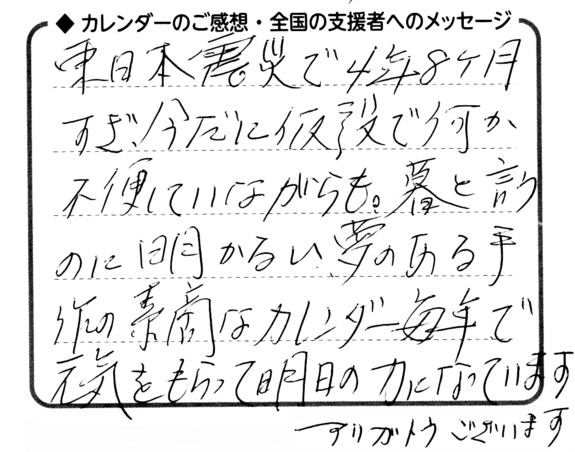 ◆ カレンダーのご感想・全国の支援者へのメッセージ
東日本震災で4年8ケ月
すぎ、今だに仮設で何か
不便していながらも。暮と言う
のに明かるい、夢のある手
作の素商なカレンダー毎年で
元気をもらって明日の力になっています
アリガトウございます